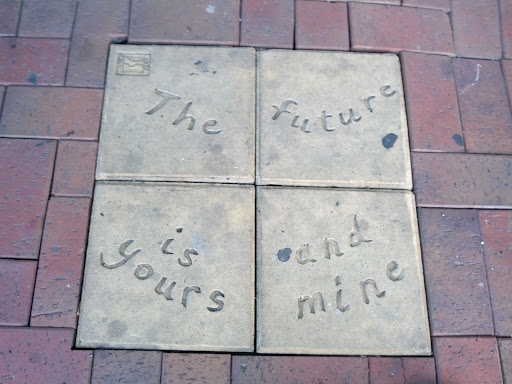 The future
is
yours
and
mine